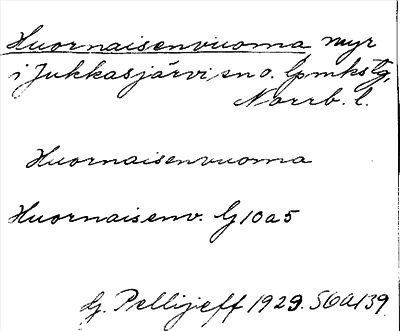 Huornaisenvuoma myr
i Jukkasjärvi sn o. lpmkstg,
Norrb. l.
Huornaisenvuoma
Huornaisenv. G10a5
G. Pellijeff 1929. S6A139